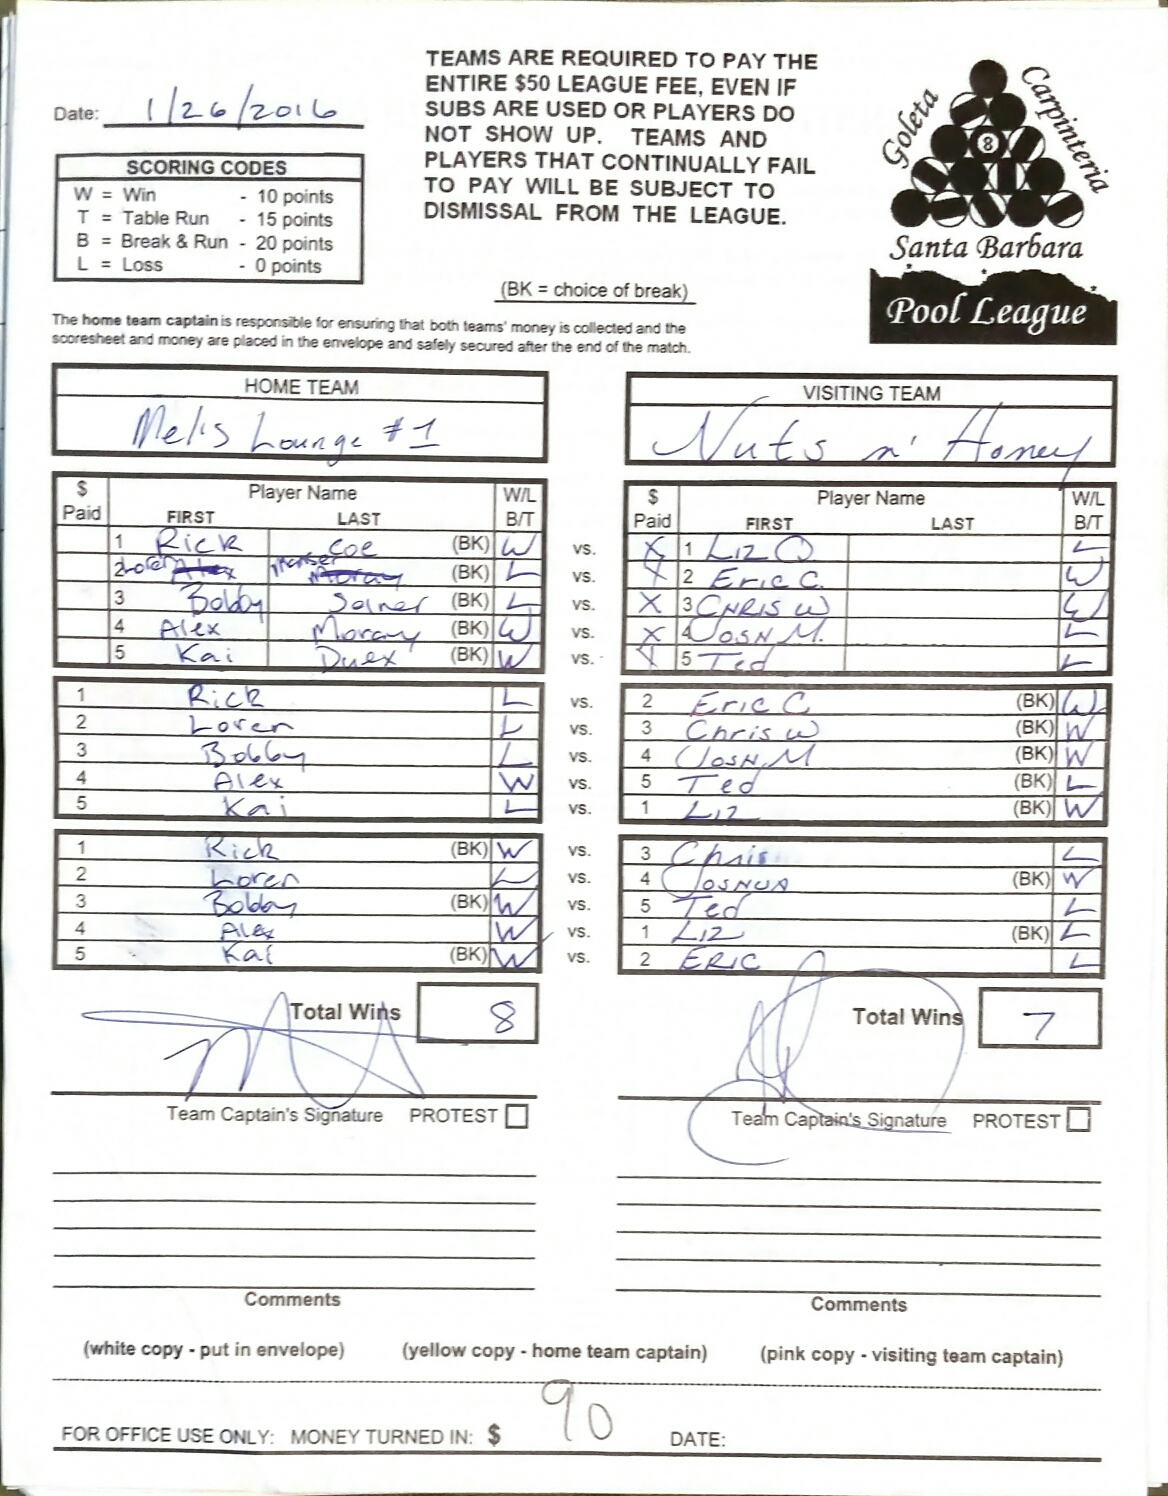 TEAMS ARE REQUIRED TO PAY THE
ENTIRE $50 LEAGUE FEE, EVEN IF
SUBS ARE USED OR PLAYERS DO
NOT SHOW UP. TEAMS AND
PLAYERS THAT CONTINUALLY FAIL
TO PAY WILL BE SUBJECT TO
DISMISSAL FROM THE LEAGUE.
Date: 1/26/2016
SCORING CODES
W = Win - 10 points
T = Table Run - 15 points
B = Break & Run - 20 points
L = Loss - 0 points
Goleta
Carpinteria
8
Santa Barbara
Pool League
(BK = choice of break)
The home team captain is responsible for ensuring that both teams' money is collected and the
scoresheet and money are placed in the envelope and safely secured after the end of the match.
HOME TEAM
Mel's Lounge #1
VISITING TEAM
Nuts n' Honey
$ Paid Player Name FIRST LAST W/L B/T
$ Paid Player Name FIRST LAST W/L B/T
1 Rick Coe (BK) W vs. X 1 Liz O. L
2 Loren (BK) L vs. X 2 Eric C. W
3 Bobby (BK) L vs. X 3 CHRIS W W
4 Alex Moray (BK) W vs. X 4 JOSH M. L
5 Kai (BK) W vs. X 5 Ted L
1 Rick L vs. 2 Eric C (BK) W
2 Loren L vs. 3 Chris W (BK) W
3 Bobby L vs. 4 JOSH M (BK) W
4 Alex W vs. 5 Ted (BK) L
5 Kai L vs. 1 Liz (BK) W
1 Rick (BK) W vs. 3 Chris L
2 Loren L vs. 4 JOSHUA (BK) W
3 Bobby (BK) W vs. 5 Ted L
4 Alex W vs. 1 LIZ (BK) L
5 Kai (BK) W vs. 2 ERIC L
Total Wins 8
Total Wins 7
Team Captain's Signature PROTEST
Team Captain's Signature PROTEST
Comments
Comments
(white copy - put in envelope) (yellow copy - home team captain) (pink copy - visiting team captain)
FOR OFFICE USE ONLY: MONEY TURNED IN: $ 90 DATE: